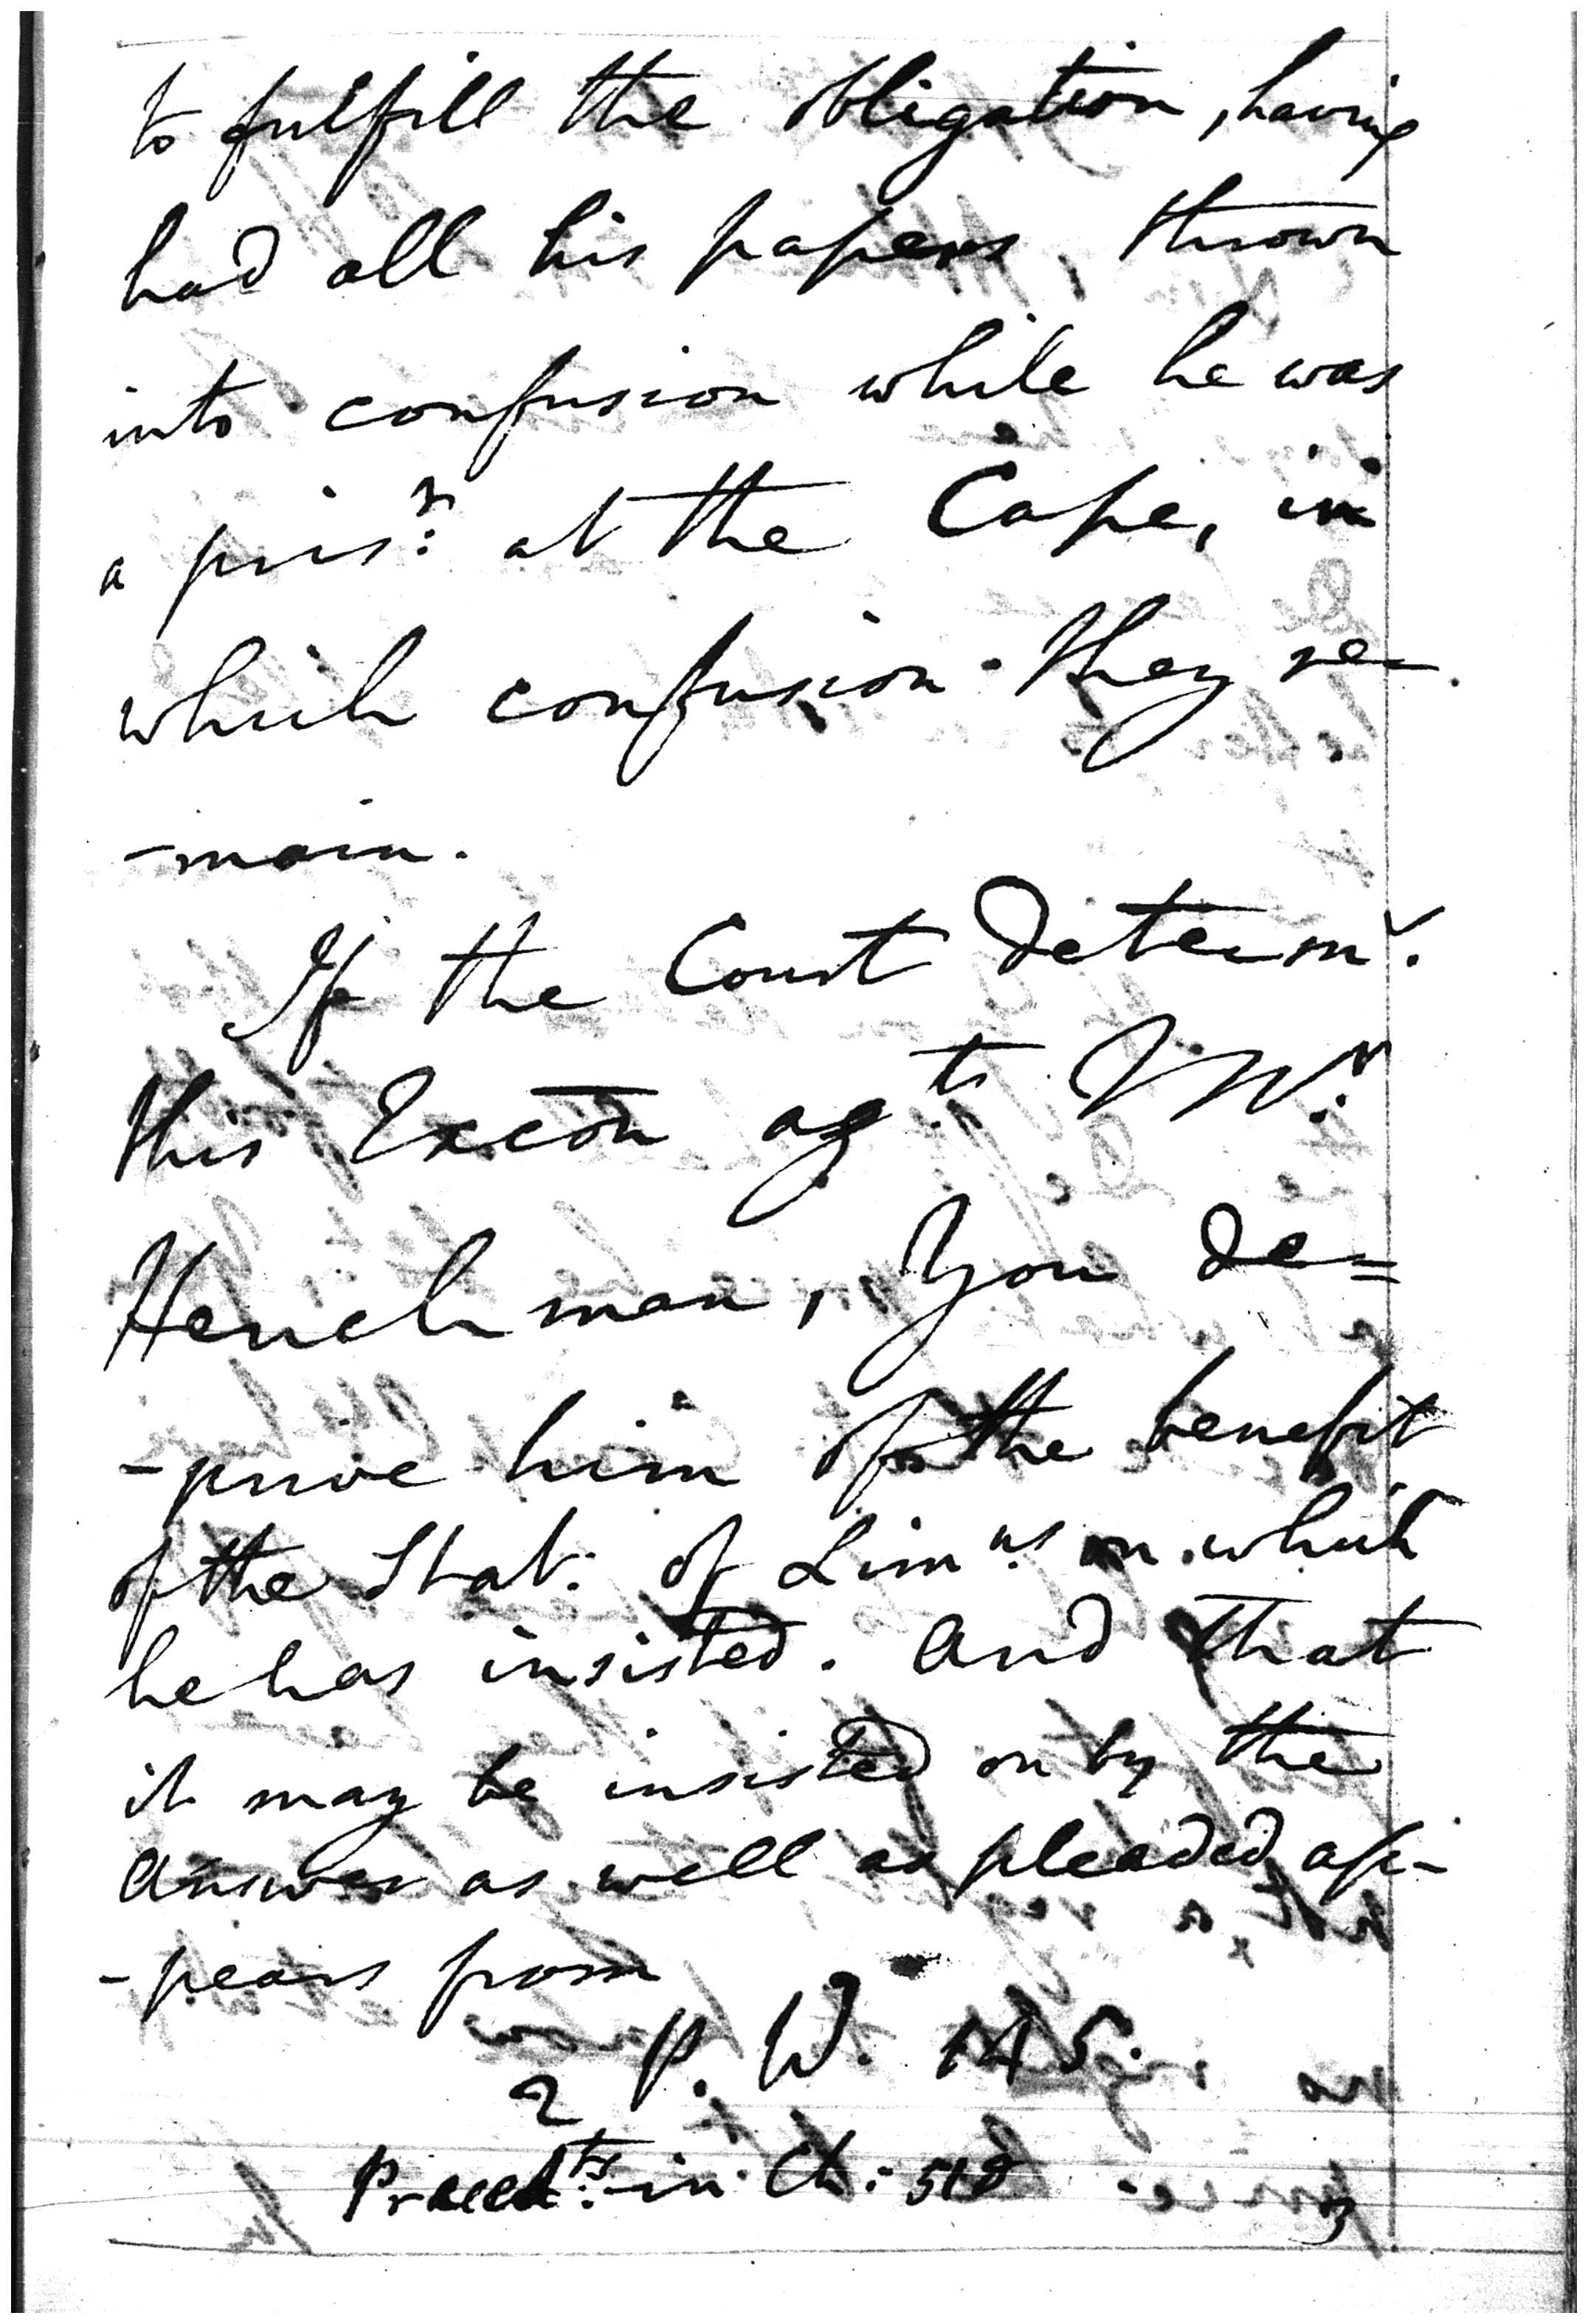 to fulfill the obligation, having
had all his papers, thrown
into confusion while he was
a pris:r at the Cape, in
which confusion they re-
-main.
If the Court determ:
this Excōn agt. Mr:
Henchman, You de=
-prive him of the benefit
of the Stat: of Limns on which
he has insisted. And that
it may be insisted on by the
answer as well as pleaded ap-
-pears from
2 P. W. 145.
Preced:ts in Ch: 518